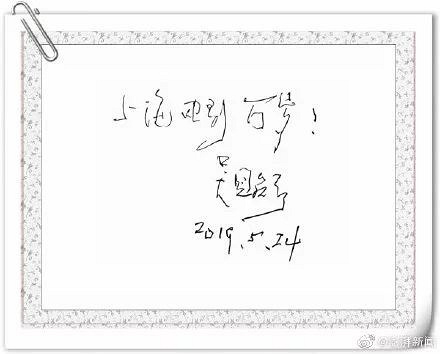 上海电影 百岁!
吴贻弓
2019.5.24
@澎湃新闻